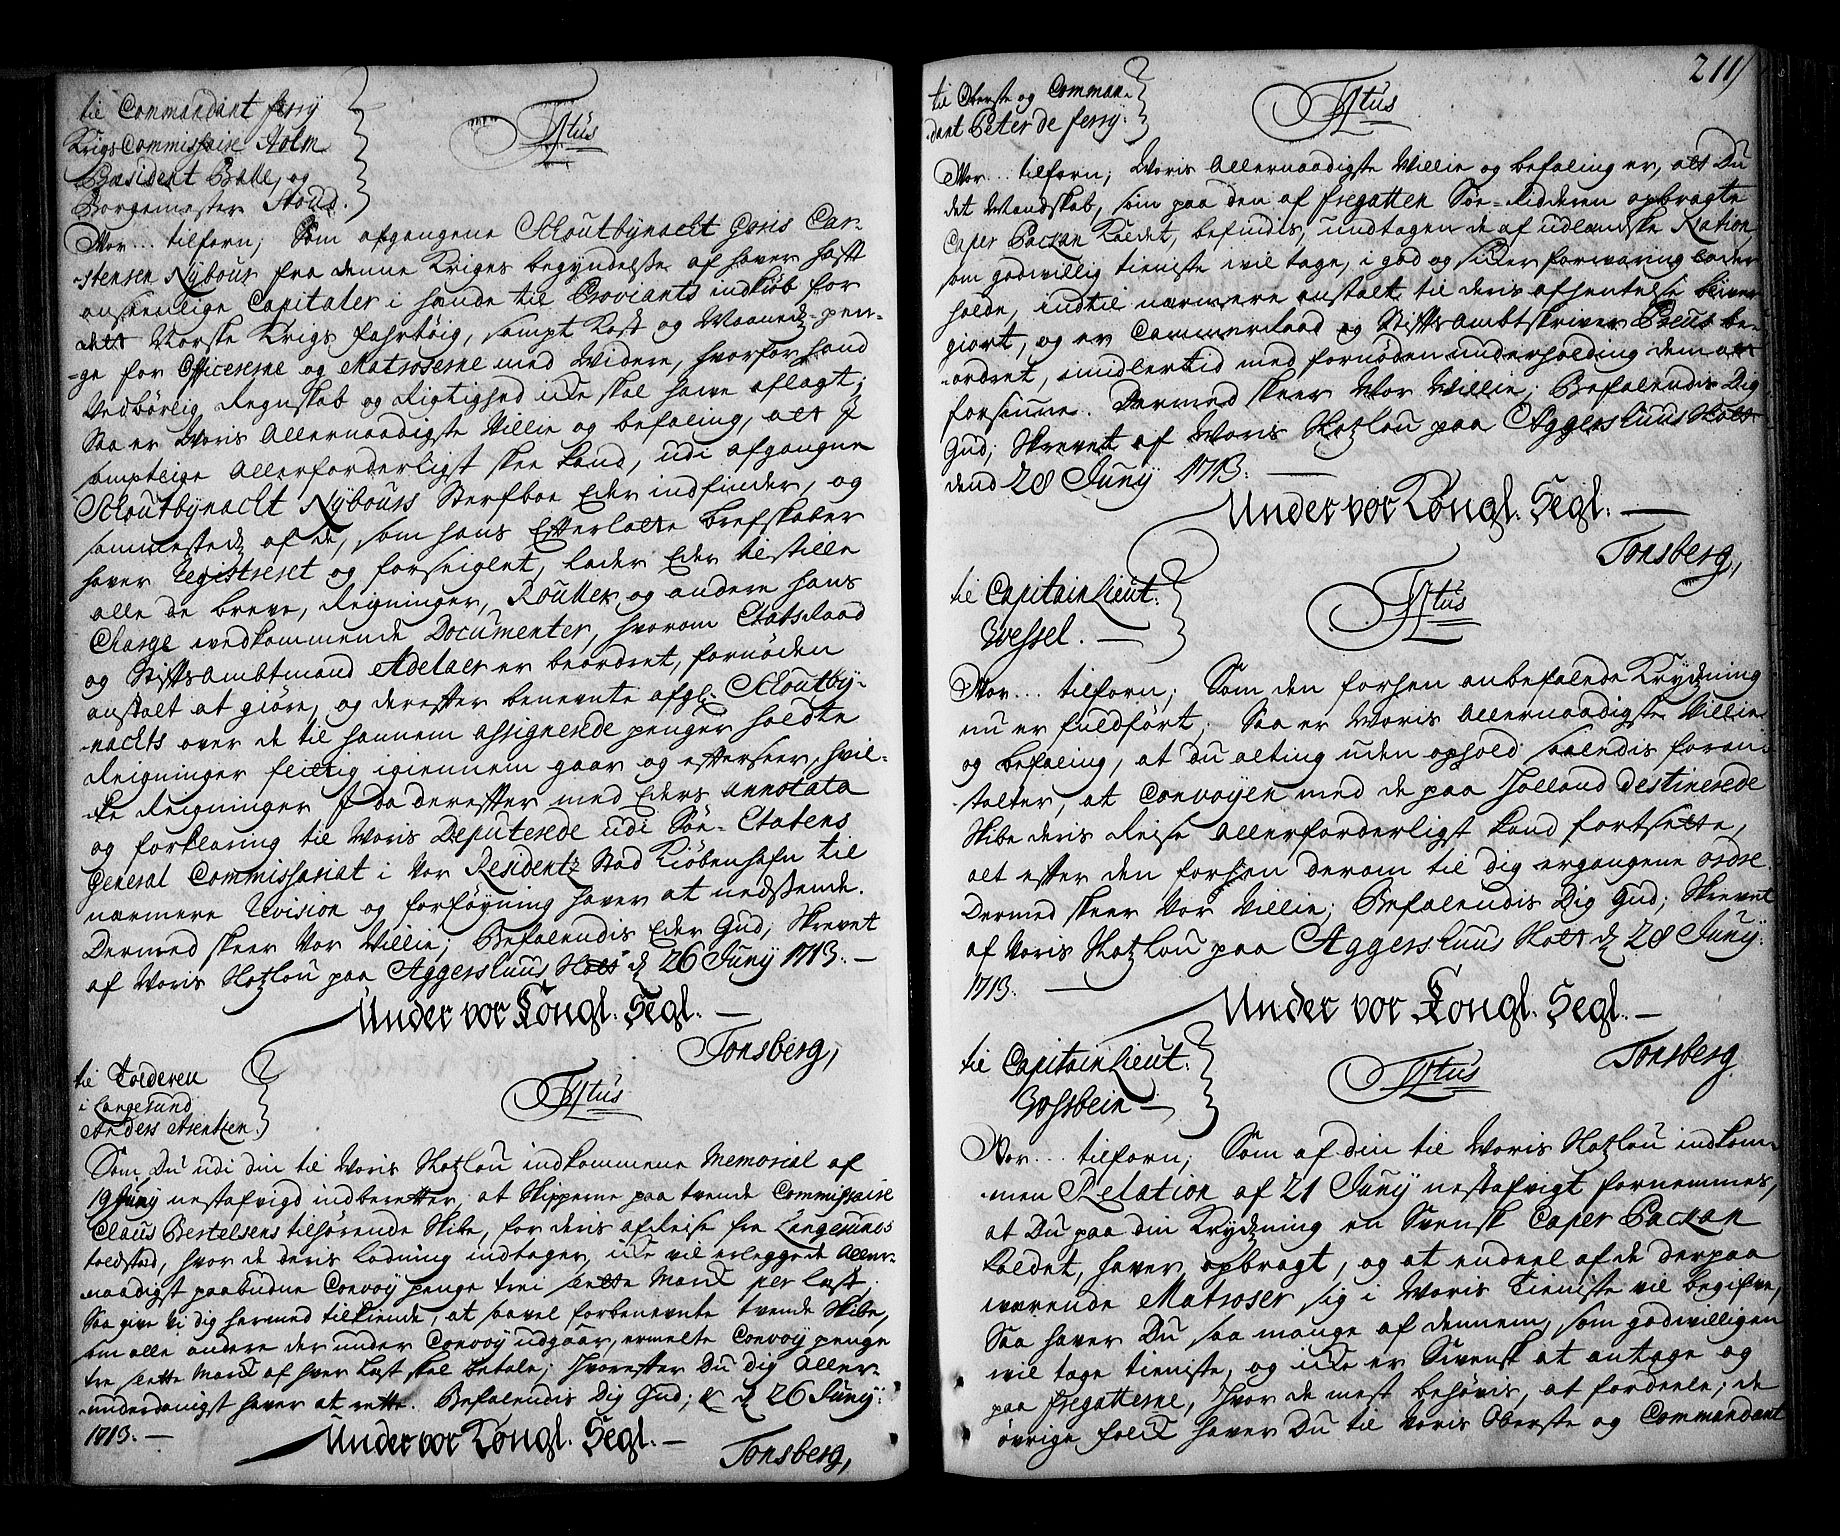 til Commandant ferry
Krigs Commissaire Holm
Præsident Balle, og
Borgemester Stoud.
Titus
Vor... tilforn; Som afgangene Schoutbynacht Goris Car-
-stensen Nybour fra denne Kriges begyndelsse af haver hafft
anseenlige Capitaler i hænde til Proviants indkiøb for
dett Norske Krigs fahrtøig, sampt Kost og Maanedz-pen-
-ge for Officererne og Matroserne med Widere, hvorfor hand
Vedbörlig Regnskab og Rigtighed icke skal have aflagt;
Saa er Woris Allernaadigste Villie og befaling, att I
samptlige Allerforderligst skee kand, udi afgangne
Schoutbynacht Nybours Sterfboe Eder indfinder, og
sammestedz af de, som hans Efterladte brefskaber
haver Registreret og forseiglet, lader Eder tilstille
alle de breve, Reigninger, Roller og andere hans
Charge wedkommende Documenter, hvorom EtatsRaad
og StifftsAmbtmand Adelaer er beordret, fornøden
anstalt at giöre, og derefter benevnte afgl: Schoutby-
-nachts over de til hannem assignerede penger holdte
Reigninger flittig igiennem gaar og efterseer, hvil-
-cke Reigninger I da derefter med Eders annotata
og forklaring til Woris Deputerede udi Söe-Etatens
General Commissariat i Vor Residentz Stad Kiöbenhafn til
nærmere Revision og forföyning haver at nedsende.
Dermed skeer Vor Villie; Befalendis Eder Gud; Skrevet
af Woris Hotzlou paa Aggershuus Slott d 26 Juny 1713.
Under vor Kongl. Segl.
Tonsberg,
til Tolderen
i Langesund
Anders Arentzen.
Titus
Som Du udi din til Woris Hotzlou indkommene Memorial af
19 Juny nestafvigd indberetter, at Skipperne paa tvende Commissaire
Claus Bertelsens tilhørende Skibe, for deris afReise fra Langesunds
toldsted, hvor de deris Ladning indtager, icke vil erlegge de Aller-
naadigst paabudne Convoy penge trei sette Marck per Læst
Saa give Vi dig hermed tilkiende, at saavel forbenevnte tvende Skibe,
som alle andere der under Convoy udgaar, ermelte Convoy penge
tre sette Marck af hver Læst skal betale; Hvorefter Du dig Aller-
-underdanigst haver at rette. Befalendis Dig Gud; & d 26 Juny:
1713.
Under vor Kongl. Segl.
Tonsberg,
211
til Oberste og Comman-
-dant Peter de ferry.
Titus
Vor... tilforn; Woris Allernaadigste Willie og befaling er, att Du
det Mandskab, som paa den af fregatten Söe-Ridderen opbragte
Caper Packan Kaldet, befindis, undtagen de af udlandske Nation,
som godwillig tieniste wil tage, i god og sicker forwaring lader
holde, indtil nærmere anstalt til deris afhentelse bliver
giort, og er Cammerraad og StifftsAmbtskriver Preus be-
-ordret, imidlertid med fornøden underholding dem att
forsiune. Dermed skeer Vor Willie; Befalendis Dig
Gud; Skrevet af Woris Hotzlou paa Aggershuus Slott
dend 28 Juny 1713.
Under vor Kongl. Segl.
Tonsberg,
til Capitain Lieut:
Wessel.
Titus
Vor... tilforn; Som den forhen anbefalede Krydzning
nu er fuldfört; Saa er Woris Allernaadigste Villie
og befaling, at Du alting uden ophold saaledis foran-
-stalter, at Convoyen med de paa Holland destinerede
Skibe deris Reise Allerforderligst kand fortsette,
alt efter den forhen derom til dig ergangene ordre.
Dermed skeer Vor Villie; Befalendis Dig Gud; Skrevet
af Voris Hotzlou paa Aggershuus Slott d 28 Juny:
1713.
Under vor Kongl. Segl.
Tonsberg.
til Capitain Lieut:
Wosbein
Titus
Vor... tilforn; Som af din til Woris Hotzlou indkom-
-men Relation af 21 Juny nestafvigt fornemmes,
at Du paa din Krydzning en Svensk Caper Packan
kaldet, haver opbragt, og at endeel af de derpaa
værende Matroser sig i Woris Tieniste vil begifve,
Saa haver Du saa mange af dennem, som godwilligen
wil tage tieniste, og icke er Swensk at antage og
paa fregatterne, hvor de mest behøvis, at fordeele; de
øvrige folck haver Du til Voris Oberste og Commandant